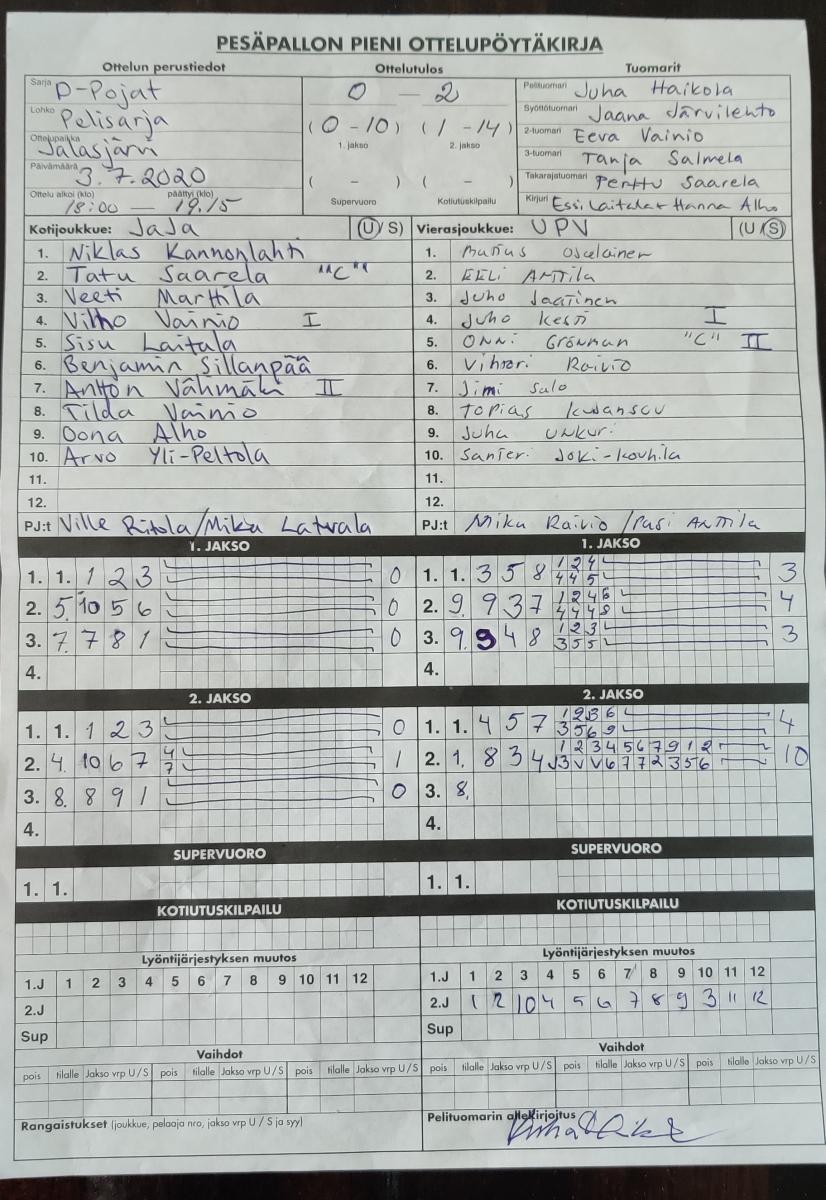 PESÄPALLON PIENI OTTELUPÖYTÄKIRJA
Ottelun perustiedot
Sarja D-Pojat
Lohko Pelisarja
Ottelupaikka Jalasjärvi
Päivämäärä 3.7.2020
Ottelu alkoi (klo) päättyi (klo)
18:00 — 19.15
Ottelutulos
0 — 2
(0-10) (1-14)
1. jakso 2. jakso
( - ) ( - )
Supervuoro Kotiutuskilpailu
Tuomarit
Pelituomari Juha Haikola
Syöttötuomari Jaana Järvilehto
2-tuomari Eeva Vainio
3-tuomari Tanja Salmela
Takarajatuomari Perttu Saarela
Kirjuri Essi Laitala + Hanna Alho
Kotijoukkue: JaJa (U/S)
1. Niklas Kannonlahti
2. Tatu Saarela "C"
3. Veeti Marttila
4. Vilho Vainio I
5. Sisu Laitala
6. Benjamin Sillanpää
7. Anton Vähmäki II
8. Tilda Vainio
9. Oona Alho
10. Arvo Yli-Peltola
11.
12.
PJ:t Ville Ritola/Mika Latvala
Vierasjoukkue: UPV (U/S)
1.
2. EELi ANTTila
3. Juho Jaatinen
4. Juho Kesti I
5. ONNi Grönman "C" II
6. Raivio
7. Jimi Salo
8. Topias
9. Juha UNKURi
10. Santeri Joki-Kouhila
11.
12.
PJ:t Mika Raivio / Pasi ANTTila
1. JAKSO
1. 1. 1 2 3 0
2. 5. 10 5 6 0
3. 7. 7 8 1 0
4.
1. JAKSO
1. 1. 3 5 8 1 2 4 3
4 4 5
2. 9. 9 3 7 1 2 4 6 4
4 4 4 8
3. 9. 9 4 8 1 2 3 3
3 5 5
4.
2. JAKSO
1. 1. 1 2 3 0
2. 4. 10 6 7 4 1
7
3. 8. 8 9 1 0
4.
2. JAKSO
1. 1. 4 5 7 1 2 3 6 4
3 5 6 9
2. 1. 8 3 4 1 2 3 4 5 6 7 9 1 2 10
√ 3 √ √ 6 7 7 2 3 5 6
3. 8.
4.
SUPERVUORO
1. 1.
SUPERVUORO
1. 1.
KOTIUTUSKILPAILU
KOTIUTUSKILPAILU
Lyöntijärjestyksen muutos
1.J 1 2 3 4 5 6 7 8 9 10 11 12
2.J
Sup
Lyöntijärjestyksen muutos
1.J 1 2 3 4 5 6 7 8 9 10 11 12
2.J 1 2 10 4 5 6 7 8 9 3 11 12
Sup
Vaihdot
pois tilalle Jakso vrp U/S pois tilalle Jakso vrp U/S pois tilalle Jakso vrp U/S
Vaihdot
pois tilalle Jakso vrp U/S pois tilalle Jakso vrp U/S pois tilalle Jakso vrp U/S
Rangaistukset (joukkue, pelaaja nro, jakso vrp U / S ja syy)
Pelituomarin allekirjoitus